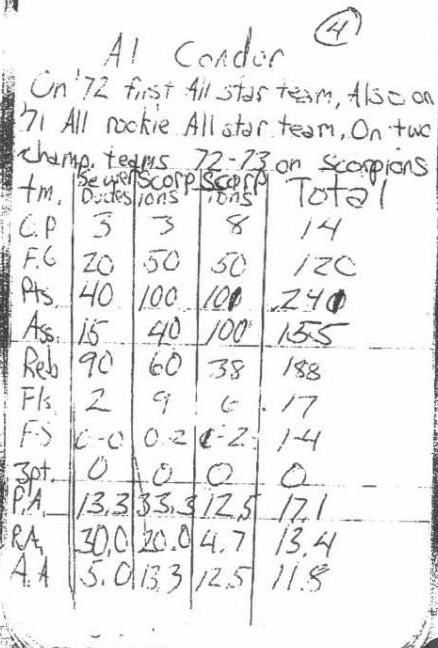 4
Al Condor
On '72 first All star team, Also on
'71 All rookie All star team, On two
champ. teams 72-73 on scorpions
tm. Sewer Dudes Scorpions Scorpions Total
G.P 3 3 8 14
F.G 20 50 50 120
Pts. 40 100 101 241
Ass. 15 40 100 155
Reb 90 60 38 188
Fls. 2 9 6 17
F.S 0-0 0-2 1-2 1-4
3pt. 0 0 0 0
P.A. 13.3 33.3 12.5 17.1
R.A. 30.0 20.0 4.7 13.4
A.A 5.0 13.3 12.5 11.8